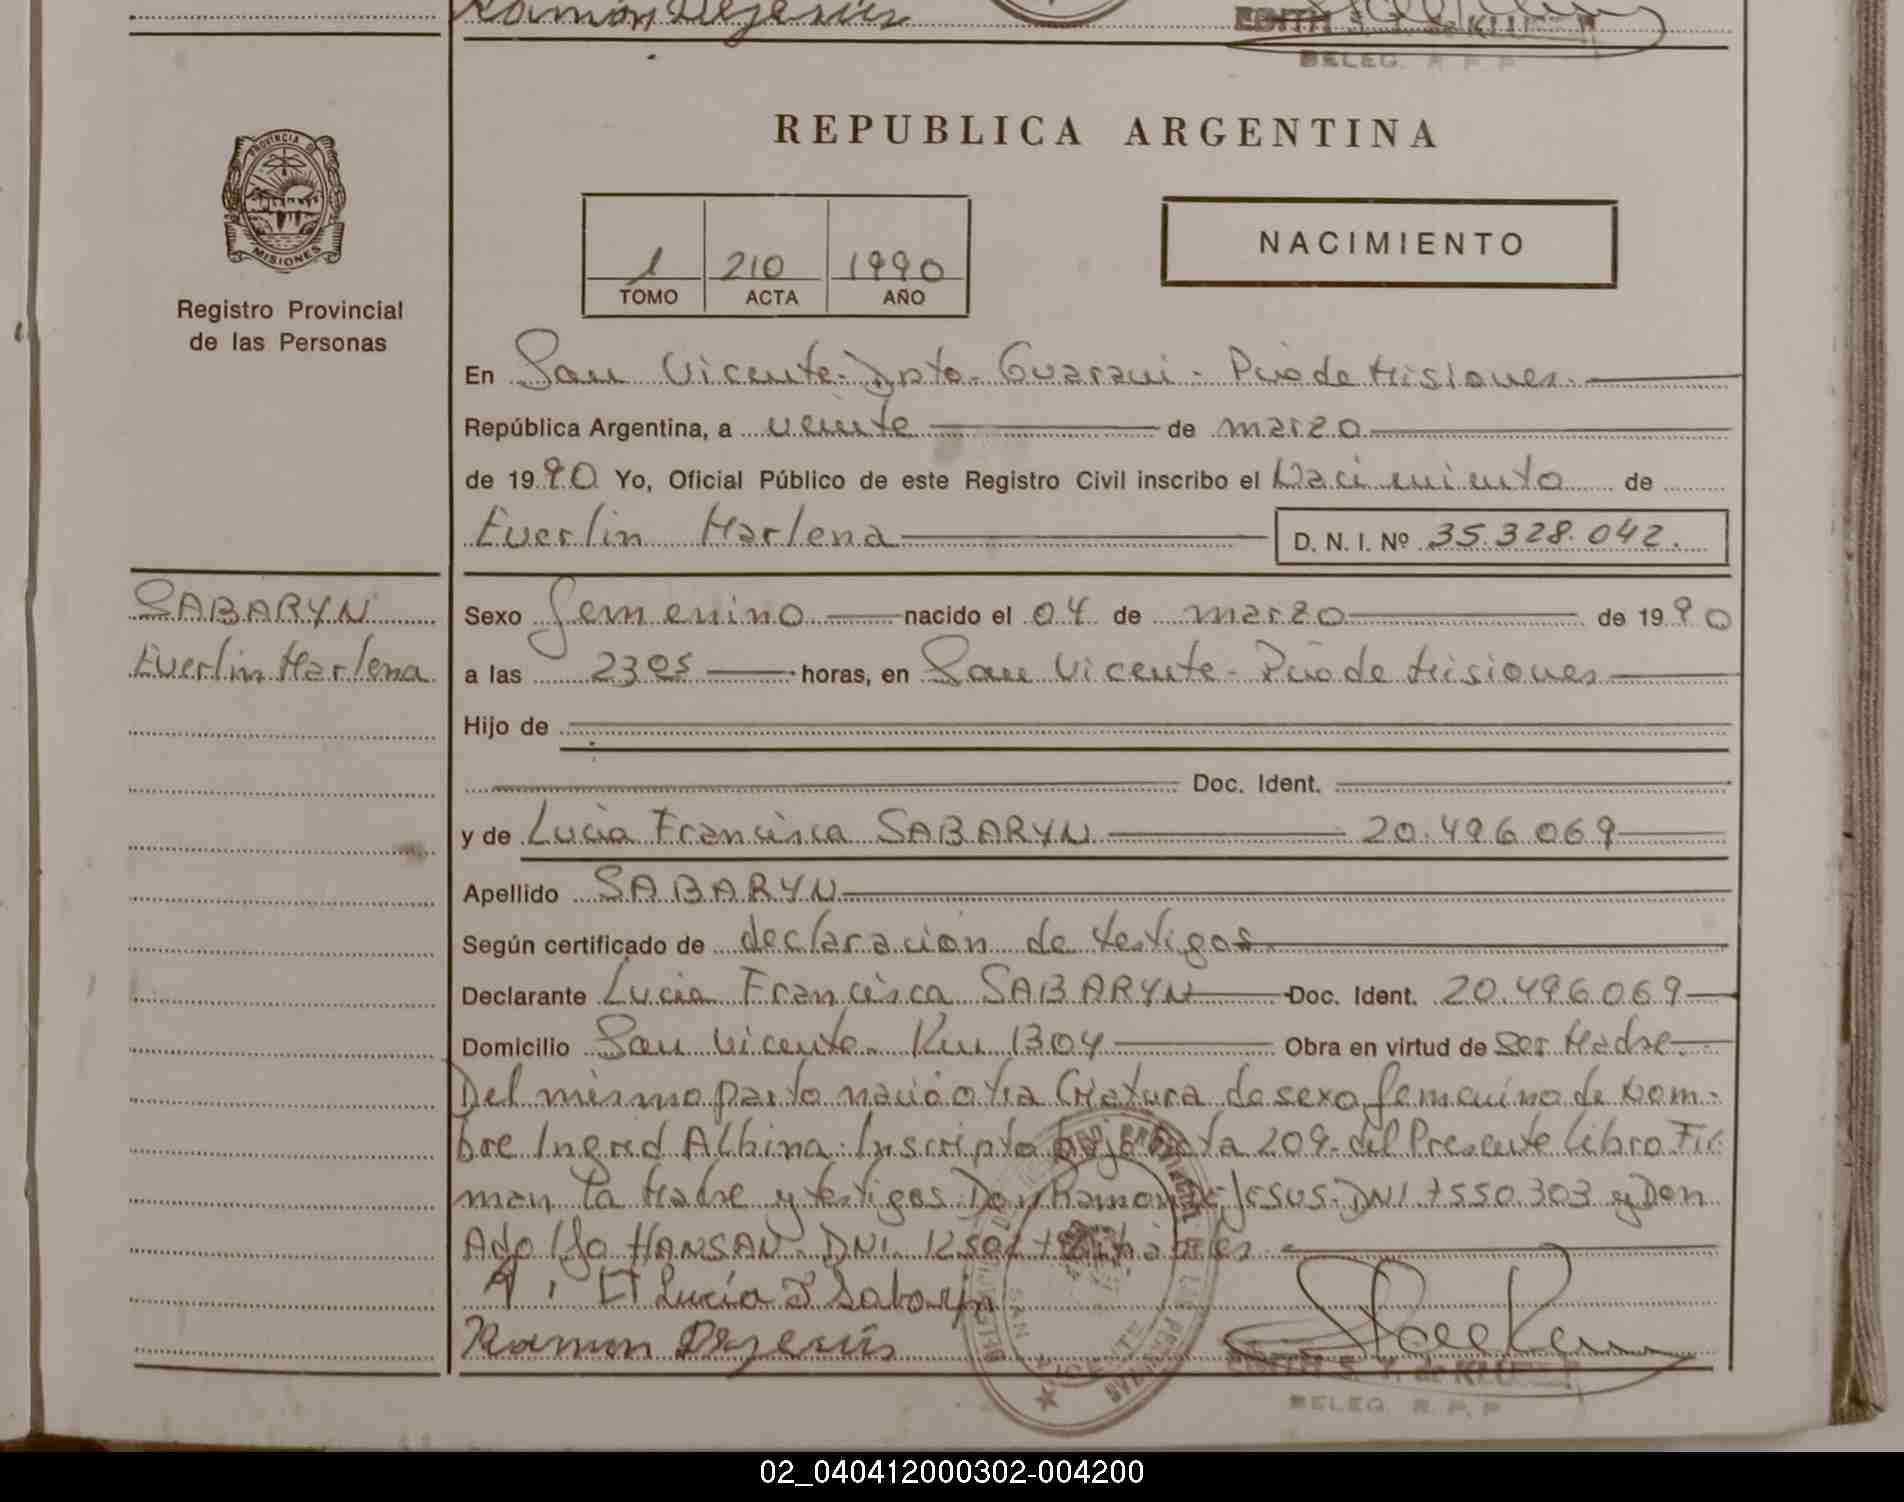 Ramón Dejesús
DELEG. R. P. P.
REPUBLICA ARGENTINA
PROVINCIA DE
MISIONES
Registro Provincial
de las Personas
1 210 1990
TOMO ACTA AÑO
NACIMIENTO
En San Vicente- Dpto- Guarani - Pciade Misiones.
República Argentina, a veinte de marzo
de 1990 Yo, Oficial Público de este Registro Civil inscribo el Nacimiento de
Everlin Marlena D. N. I. Nº 35.328.042.
SABARYN
Everlin Marlena
Sexo femenino nacido el 04 de marzo de 1990
a las 2305 horas, en San Vicente - Pciade Misiones
Hijo de
Doc. Ident.
y de Lucia Francisca SABARYN 20.496.069
Apellido SABARYN
Según certificado de declaración de testigos
Declarante Lucia Francisca SABARYN Doc. Ident. 20.496.069
Domicilio San Vicente- Km 1304 Obra en virtud de Ser Madre
Del mismo parto nació otra Criatura de sexo femenino de Nom-
bre Ingrid Albina. Inscripta bajo Acta 209- del Presente Libro. Fir
man la Madre y testigos Don Ramon De JESUS- DNI 7550.303 y Don
Adolfo HANSAN- DNI. hábiles
Lucía F Sabaryn
Ramon Dejesús
SAN VICENTE
DELEG. R. P. P
02_040412000302-004200